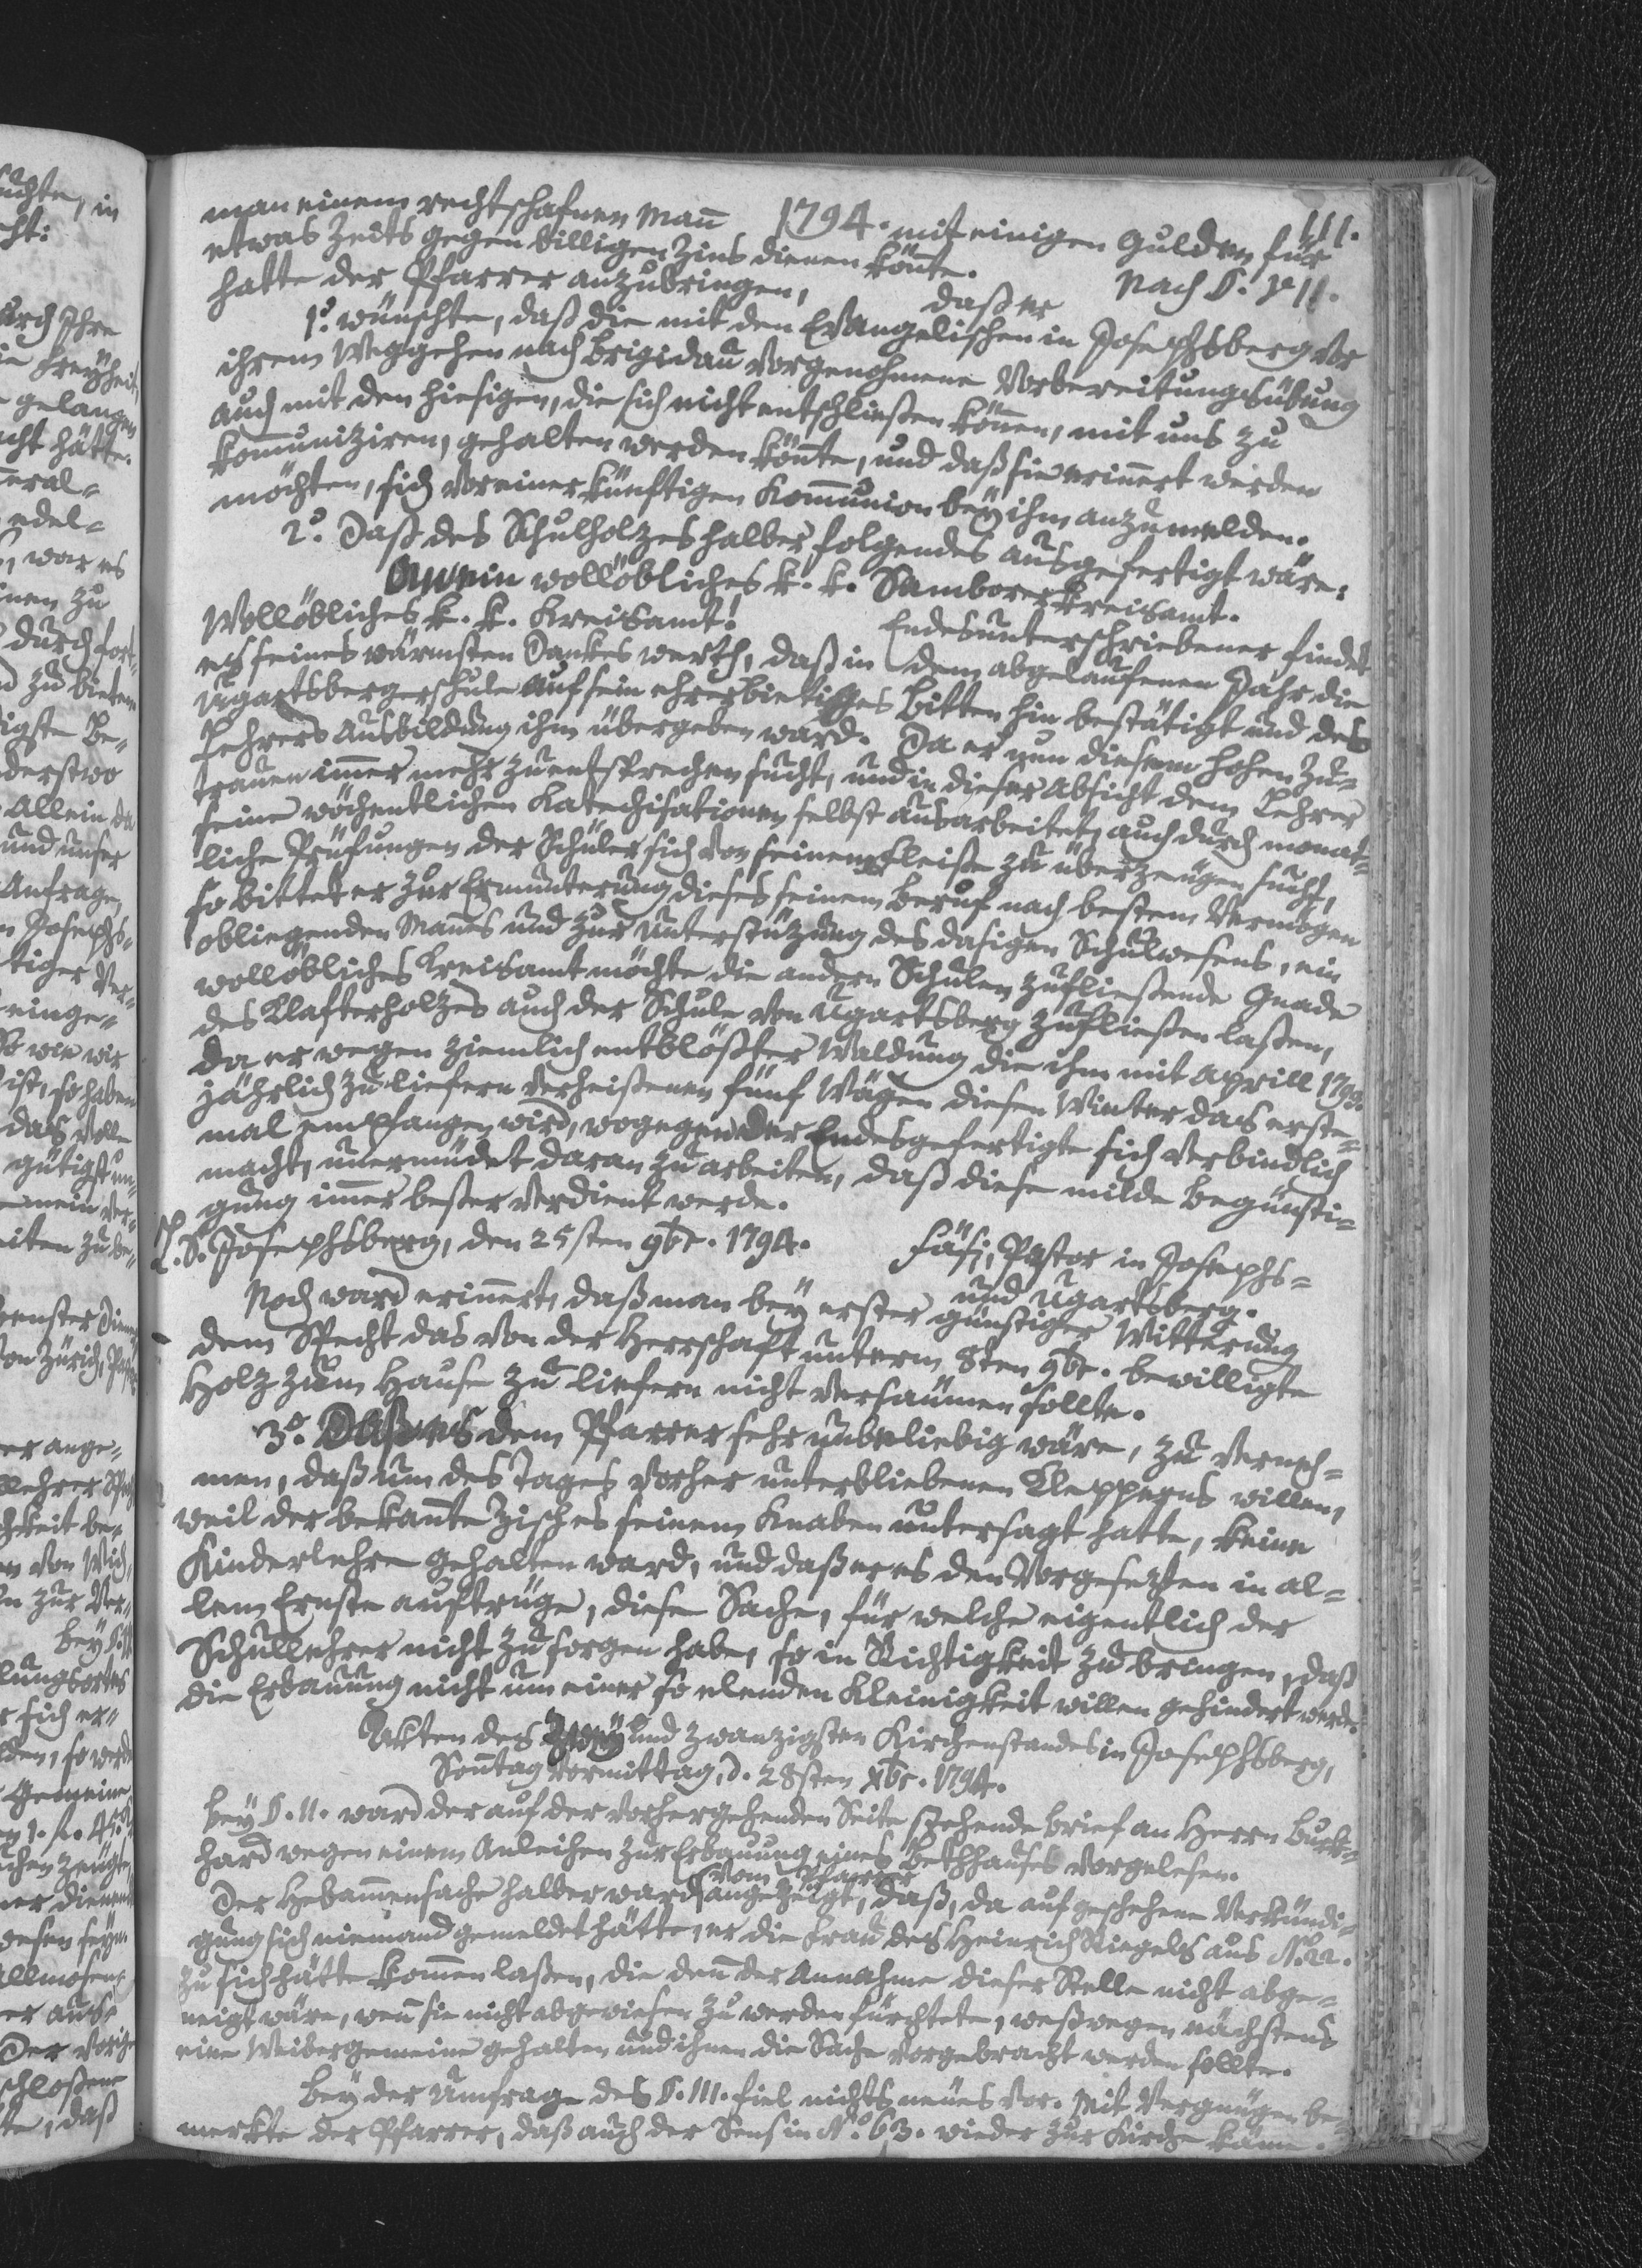 1794. 111.
man einem rechtschafnen Mañ mit einigen Gulden für
etwas Zeits gegen billigen Zins dienen köñte. Nach §. II.
hatte der Pfarrer anzubringen, daß er
1º. wünschte, daß die mit den Evangelischen in Josephsberg vor
ihrem Weggehen nach Brigidau vorgenohmene Vorbereitungsübung
auch mit den hiesigen, die sich nicht entschließen köñen, mit uns zu
kom̃uniziren, gehalten werden köñte, und daß sie eriñert werden
möchten, sich vor einer künftigen Kom̃union bey ihm anzumelden.
2º. Daß des Schulholzes halber folgendes ausgefertigt wäre:
An ein wollöbliches k. k. Samborer Kreisamt.
Wollöbliches k. k. Kreisamt! Endesunterschriebener findet
es seines wärmsten Dankes werth, daß in dem abgelaufenen Jahr die
Ugartsbergerschule auf sein ehrerbietiges Bitten hin bestätigt und des
Lehrers Ausbildung ihm übergeben ward. Da er nun diesem hohen Zu-
trauen im̃er mehr zu entsprechen sucht, und in dieser Absicht dem Lehrer
seine wöchentlichen Katechisationen selbst ausarbeitet, auch durch monat-
liche Prüfungen der Schüler sich von seinem Fleiße zu überzeugen sucht,
so bittet er zur Ermunterung dieses seinem Beruf nach bestem Vermögen
obliegenden Mañes und zur Unterstüzung des dasigen Schulwesens, ein
wollöbliches Kreisamt möchte die andern Schulen zufließende Gnade
des Klafterholzes auch der Schule von Ugartsberg zufließen laßen,
da er wegen ziemlich entblößter Waldung die ihm mit Aprill 1793.
jährlich zu liefern verheißenen fünf Wägen diesen Winter das erste-
mal empfangen wird, wogegen der Endesgefertigte sich verbindlich
macht, unermüdet daran zu arbeiten, daß diese milde Begünsti-
gung im̃er beßer verdient werde.
S. Josephsberg, den 25sten 9br. 1794. Fäsi, Pastor in Josephs-
und Ugartsberg.
Noch ward eriñert, daß man bey erster günstiger Witterung
dem Specht das von der Herrschaft unterm 8ten 9br. bewilligte
Holz zum Hause zu liefern nicht versäumen sollte.
3º. Daß es dem Pfarrer sehr unbeliebig wäre, zu verneh-
men, daß um des Tages vorher unterbliebenen Klepperns willen,
weil der bekañte Zisch es seinem Knaben untersagt hatte, keine
Kinderlehre gehalten ward, und daß er es den Vorgesezten in al-
lem Ernste auftrüge, diese Sache, für welche eigentlich der
Schullehrer nicht zu sorgen habe, so in Richtigkeit zu bringen, daß
die Erbauung nicht um einer so elenden Kleinigkeit willen gehindert werde.
Akten des Zwey und zwanzigsten Kirchenstandes in Josephsberg,
Soñtag Vormittag, d. 28sten Xbr. 1794.
Bey §. II. ward der auf der vorhergehenden Seite stehende Brief an Herrn Burk-
hard wegen einem Anleihen zur Erbauung eines Bethhauses vorgelesen.
Der Hebam̃ensache halber ward vom Pfarrer angezeigt, daß, da auf geschehene Verkündi-
gung sich niemand gemeldet hätte, er die Frau des Heinrich Riegels aus Nº. 22.
zu sich hätte kom̃en laßen, die deñ der Annahme dieser Stelle nicht abge-
neigt wäre, weñ sie nicht abgewiesen zu werden fürchtete, weßwegen nächstens
eine Weibergemeine gehalten und ihnen die Sache vorgebracht werden sollte.
Bey der Umfrage des §. III. fiel nichts neues vor. Mit Vergnügen be-
merkte der Pfarrer, daß auch der Senf in Nº. 63. wieder zur Kirche käme.